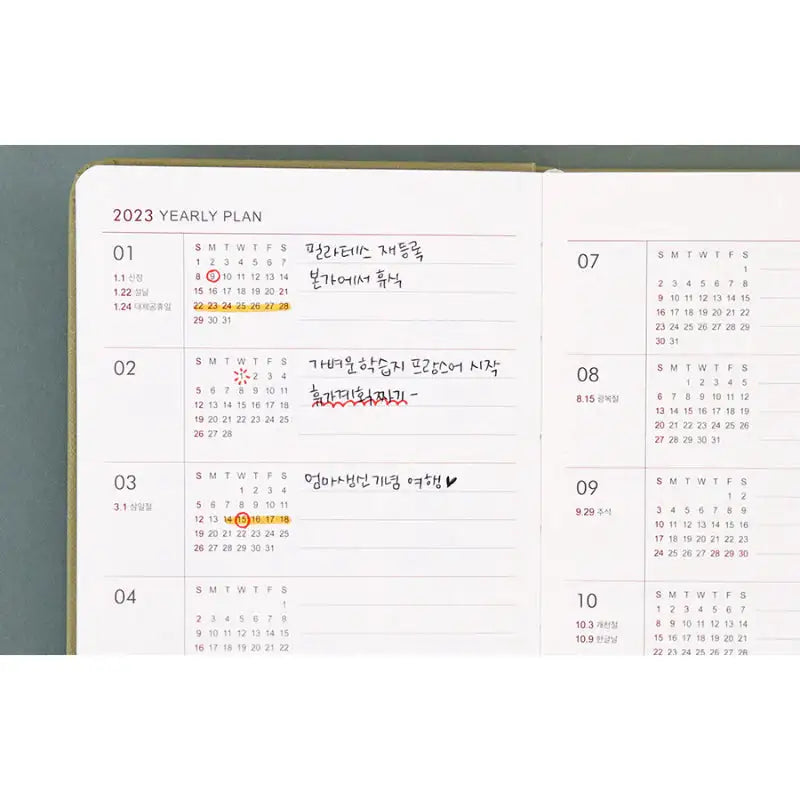 2023 YEARLY PLAN
01
1.1 신정
1.22 설날
1.24 대체공휴일
S M T W T F S
1 2 3 4 5 6 7
8 9 10 11 12 13 14
15 16 17 18 19 20 21
22 23 24 25 26 27 28
29 30 31
필라테스 재등록
본가에서 휴식
02
S M T W T F S
1 2 3 4
5 6 7 8 9 10 11
12 13 14 15 16 17 18
19 20 21 22 23 24 25
26 27 28
가벼운학습지 프랑스어 시작
휴가계획짜기~
03
3.1 삼일절
S M T W T F S
1 2 3 4
5 6 7 8 9 10 11
12 13 14 15 16 17 18
19 20 21 22 23 24 25
26 27 28 29 30 31
엄마생신기념 여행♥
04
S M T W T F S
1
2 3 4 5 6 7 8
9 10 11 12 13 14 15
16 17 18 19 20 21 22
07
S M T W T F S
1
2 3 4 5 6 7 8
9 10 11 12 13 14 15
16 17 18 19 20 21 22
23 24 25 26 27 28 29
30 31
08
8.15 광복절
S M T W T F S
1 2 3 4 5
6 7 8 9 10 11 12
13 14 15 16 17 18 19
20 21 22 23 24 25 26
27 28 29 30 31
09
9.29 추석
S M T W T F S
1 2
3 4 5 6 7 8 9
10 11 12 13 14 15 16
17 18 19 20 21 22 23
24 25 26 27 28 29 30
10
10.3 개천절
10.9 한글날
S M T W T F S
1 2 3 4 5 6 7
8 9 10 11 12 13 14
15 16 17 18 19 20 21
22 23 24 25 26 27 28